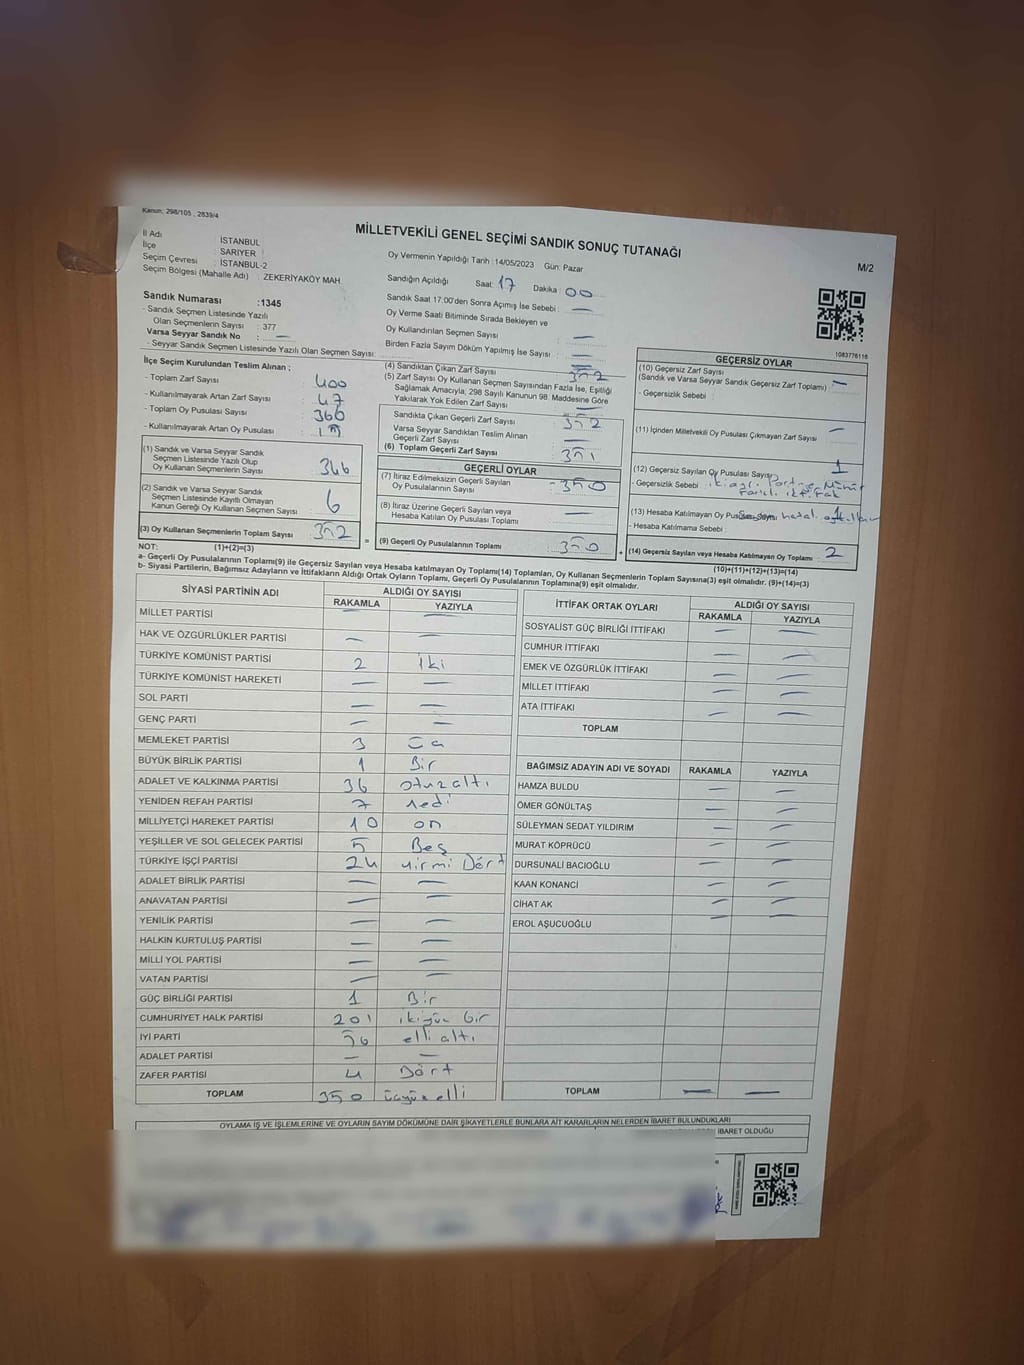 Kanun: 298/105 , 2839/4
MİLLETVEKİLİ GENEL SEÇİMİ SANDIK SONUÇ TUTANAĞI
M/2
İl Adı : İSTANBUL
İlçe : SARIYER
Seçim Çevresi : İSTANBUL-2
Seçim Bölgesi (Mahalle Adı) : ZEKERİYAKÖY MAH.
Oy Vermenin Yapıldığı Tarih :14/05/2023 Gün: Pazar
Sandığın Açıldığı Saat: 17 Dakika : 00
Sandık Saat 17:00'den Sonra Açımış İse Sebebi : —
Oy Verme Saati Bitiminde Sırada Bekleyen ve
Oy Kullandırılan Seçmen Sayısı : —
Birden Fazla Sayım Döküm Yapılmış İse Sayısı : —
Sandık Numarası :1345
- Sandık Seçmen Listesinde Yazılı
Olan Seçmenlerin Sayısı : 377
Varsa Seyyar Sandık No : —
- Seyyar Sandık Seçmen Listesinde Yazılı Olan Seçmen Sayısı:
1083776116
İlçe Seçim Kurulundan Teslim Alınan ;
- Toplam Zarf Sayısı : 400
- Kullanılmayarak Artan Zarf Sayısı : 47
- Toplam Oy Pusulası Sayısı : 366
- Kullanılmayarak Artan Oy Pusulası :
(1) Sandık ve Varsa Seyyar Sandık
Seçmen Listesinde Yazılı Olup
Oy Kullanan Seçmenlerin Sayısı : 346
(2) Sandık ve Varsa Seyyar Sandık
Seçmen Listesinde Kayıtlı Olmayan
Kanun Gereği Oy Kullanan Seçmen Sayısı : 6
(3) Oy Kullanan Seçmenlerin Toplam Sayısı : 352
(4) Sandıktan Çıkan Zarf Sayısı : 352
(5) Zarf Sayısı Oy Kullanan Seçmen Sayısından Fazla İse, Eşitliği
Sağlamak Amacıyla, 298 Sayılı Kanunun 98. Maddesine Göre
Yakılarak Yok Edilen Zarf Sayısı : —
Sandıkta Çıkan Geçerli Zarf Sayısı : 352
Varsa Seyyar Sandıktan Teslim Alınan
Geçerli Zarf Sayısı : —
(6) Toplam Geçerli Zarf Sayısı : 351
GEÇERLİ OYLAR
(7) İtiraz Edilmeksizin Geçerli Sayılan
Oy Pusulalarının Sayısı : 350
(8) İtiraz Üzerine Geçerli Sayılan veya
Hesaba Katılan Oy Pusulası Toplamı : —
(9) Geçerli Oy Pusulalarının Toplamı : 350
GEÇERSİZ OYLAR
(10) Geçersiz Zarf Sayısı
(Sandık ve Varsa Seyyar Sandık Geçersiz Zarf Toplamı) : —
- Geçersizlik Sebebi :
(11) İçinden Milletvekili Oy Pusulası Çıkmayan Zarf Sayısı : —
(12) Geçersiz Sayılan Oy Pusulası Sayısı : 1
- Geçersizlik Sebebi : iki ayrı Partiye Mühür
Farklı ittifak
(13) Hesaba Katılmayan Oy Pusulası Sayısı
- Hesaba Katılmama Sebebi :
(14) Geçersiz Sayılan veya Hesaba Katılmayan Oy Toplamı : 2
(10)+(11)+(12)+(13)=(14)
NOT: (1)+(2)=(3)
a- Geçerli Oy Pusulalarının Toplamı(9) ile Geçersiz Sayılan veya Hesaba Katılmayan Oy Toplamı(14) Toplamları, Oy Kullanan Seçmenlerin Toplam Sayısına(3) eşit olmalıdır. (9)+(14)=(3)
b- Siyasi Partilerin, Bağımsız Adayların ve İttifakların Aldığı Ortak Oyların Toplamı, Geçerli Oy Pusulalarının Toplamına(9) eşit olmalıdır.
SİYASİ PARTİNİN ADI ALDIĞI OY SAYISI
RAKAMLA YAZIYLA
MİLLET PARTİSİ — —
HAK VE ÖZGÜRLÜKLER PARTİSİ — —
TÜRKİYE KOMÜNİST PARTİSİ 2 iki
TÜRKİYE KOMÜNİST HAREKETİ — —
SOL PARTİ — —
GENÇ PARTİ — —
MEMLEKET PARTİSİ 3 üç
BÜYÜK BİRLİK PARTİSİ 1 Bir
ADALET VE KALKINMA PARTİSİ 36 otuzaltı
YENİDEN REFAH PARTİSİ 7 Yedi
MİLLİYETÇİ HAREKET PARTİSİ 10 on
YEŞİLLER VE SOL GELECEK PARTİSİ 5 Beş
TÜRKİYE İŞÇİ PARTİSİ 24 Yirmi Dört
ADALET BİRLİK PARTİSİ — —
ANAVATAN PARTİSİ — —
YENİLİK PARTİSİ — —
HALKIN KURTULUŞ PARTİSİ — —
MİLLİ YOL PARTİSİ — —
VATAN PARTİSİ — —
GÜÇ BİRLİĞİ PARTİSİ 1 Bir
CUMHURİYET HALK PARTİSİ 201 ikiyüz bir
İYİ PARTİ 56 elli altı
ADALET PARTİSİ — —
ZAFER PARTİSİ 4 Dört
TOPLAM 350 üçyüz elli
İTTİFAK ORTAK OYLARI ALDIĞI OY SAYISI
RAKAMLA YAZIYLA
SOSYALİST GÜÇ BİRLİĞİ İTTİFAKI — —
CUMHUR İTTİFAKI — —
EMEK VE ÖZGÜRLÜK İTTİFAKI — —
MİLLET İTTİFAKI — —
ATA İTTİFAKI — —
TOPLAM
BAĞIMSIZ ADAYIN ADI VE SOYADI RAKAMLA YAZIYLA
HAMZA BULDU — —
ÖMER GÖNÜLTAŞ — —
SÜLEYMAN SEDAT YILDIRIM — —
MURAT KÖPRÜCÜ — —
DURSUNALİ BACIOĞLU — —
KAAN KONANCİ — —
CİHAT AK — —
EROL AŞUCUOĞLU — —
TOPLAM — —
OYLAMA İŞ VE İŞLEMLERİNE VE OYLARIN SAYIM DÖKÜMÜNE DAİR ŞİKAYETLERLE BUNLARA AİT KARARLARIN NELERDEN İBARET BULUNDUKLARI
İBARET OLDUĞU